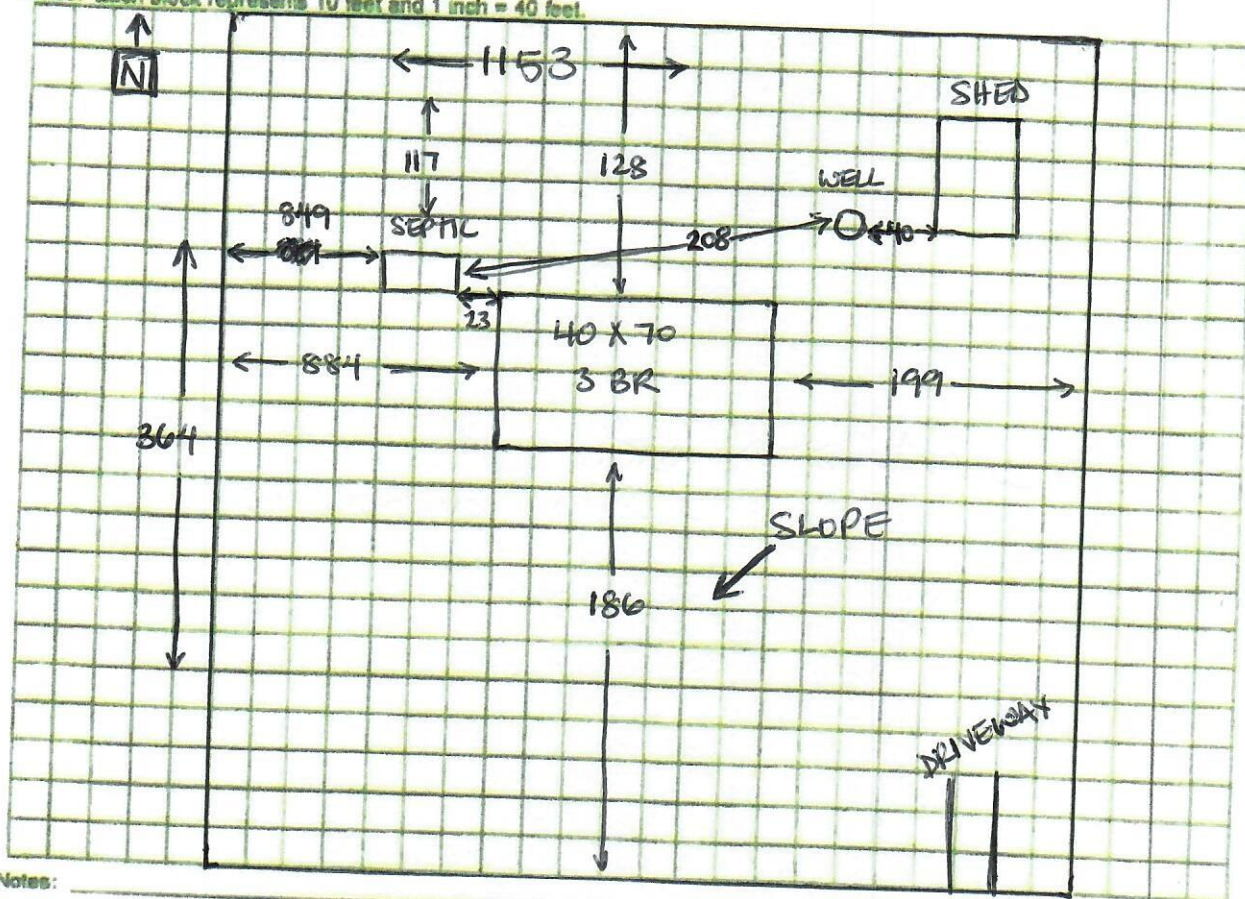 Each block represents 10 feet and 1 inch = 40 feet.
N
1153
SHED
117
128
WELL
849
SEPTIC
208
40
23
40 X 70
3 BR
884
199
364
SLOPE
186
DRIVEWAY
Notes: